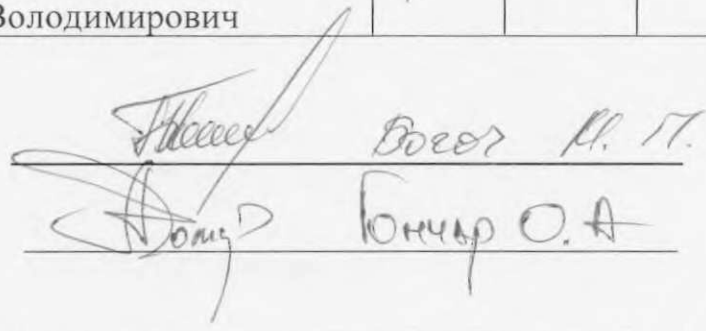 Володимирович
Богоч М. П.
Гончар О. А